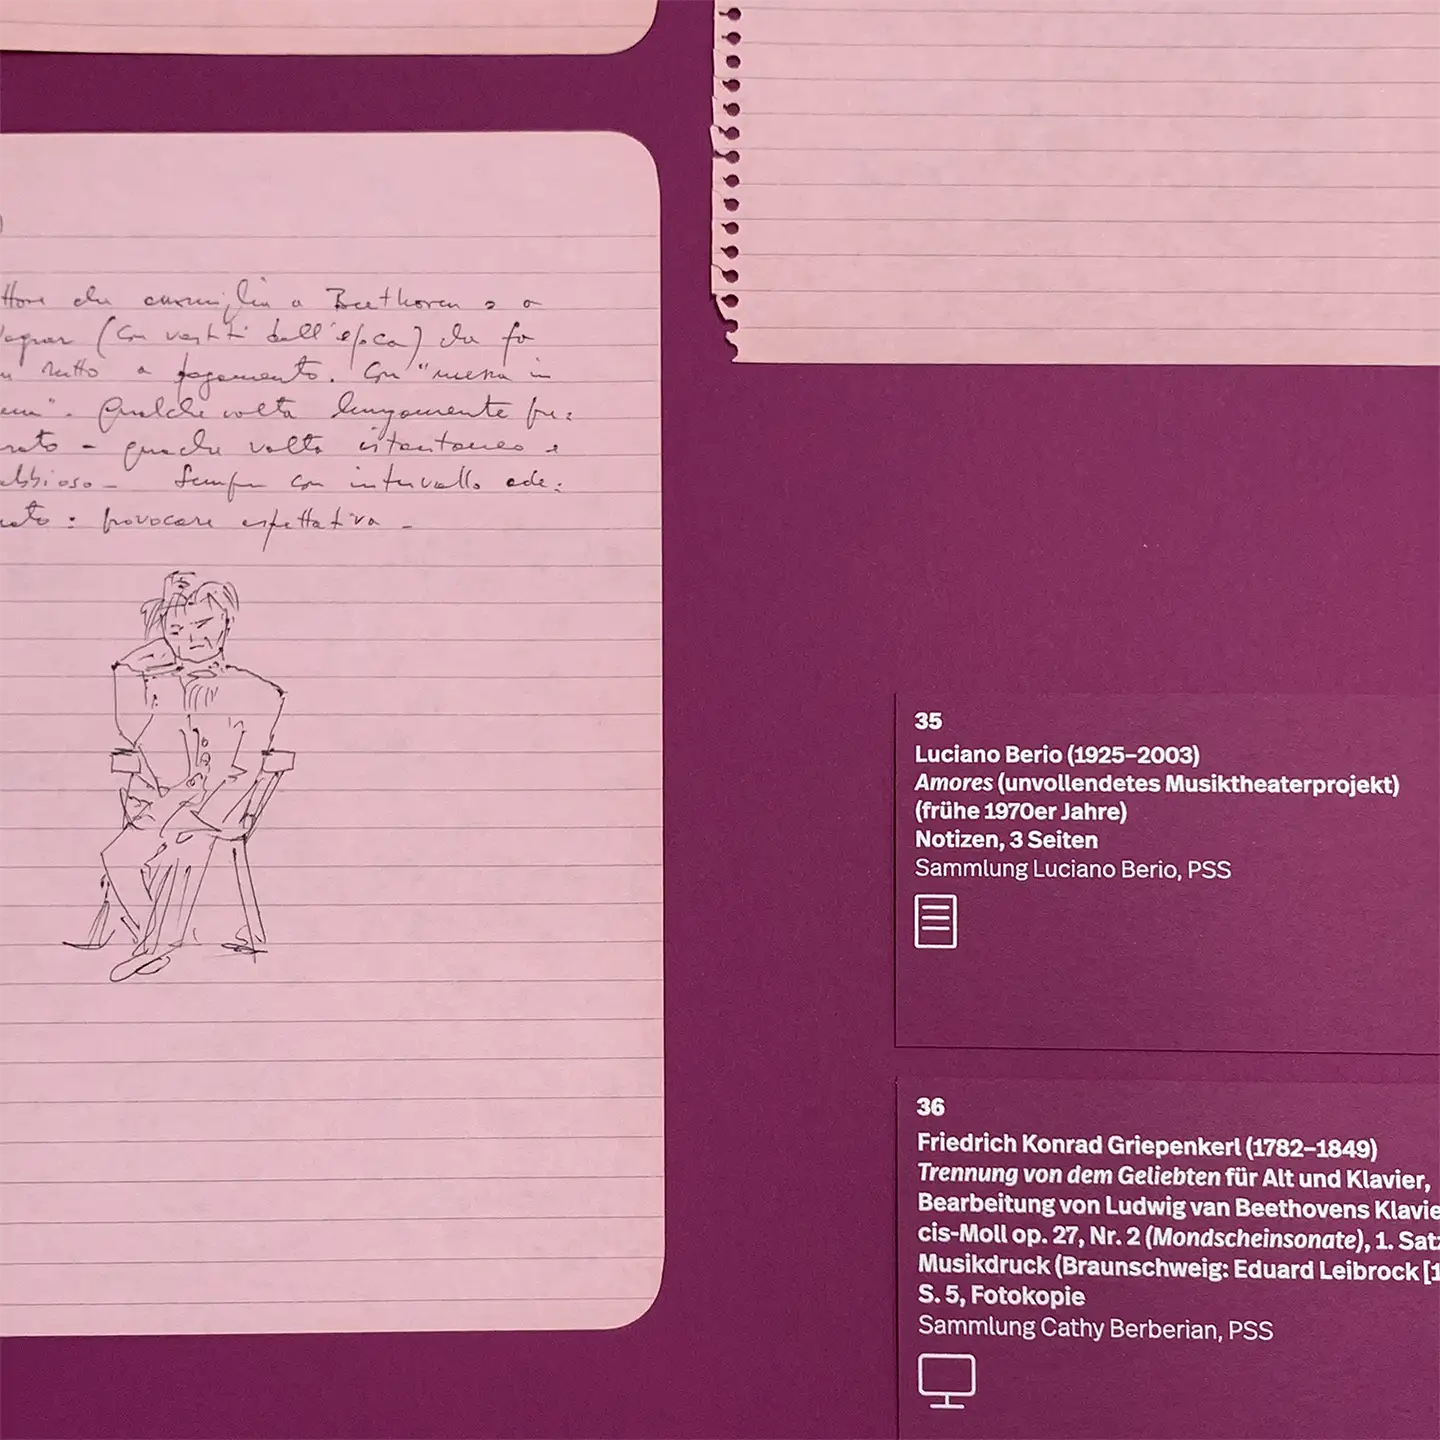 che assomiglia a Beethoven o a
(con vestiti dell'epoca) che fa
tutto a pagamento. Con "messa in
Qualche volta lungamente pre:
– qualche volta istantaneo e
– Sempre con intervallo ade:
: provocare aspettativa –
35
Luciano Berio (1925–2003)
Amores (unvollendetes Musiktheaterprojekt)
(frühe 1970er Jahre)
Notizen, 3 Seiten
Sammlung Luciano Berio, PSS
36
Friedrich Konrad Griepenkerl (1782–1849)
Trennung von dem Geliebten für Alt und Klavier,
Bearbeitung von Ludwig van Beethovens Klavie
cis-Moll op. 27, Nr. 2 (Mondscheinsonate), 1. Satz
Musikdruck (Braunschweig: Eduard Leibrock [1
S. 5, Fotokopie
Sammlung Cathy Berberian, PSS